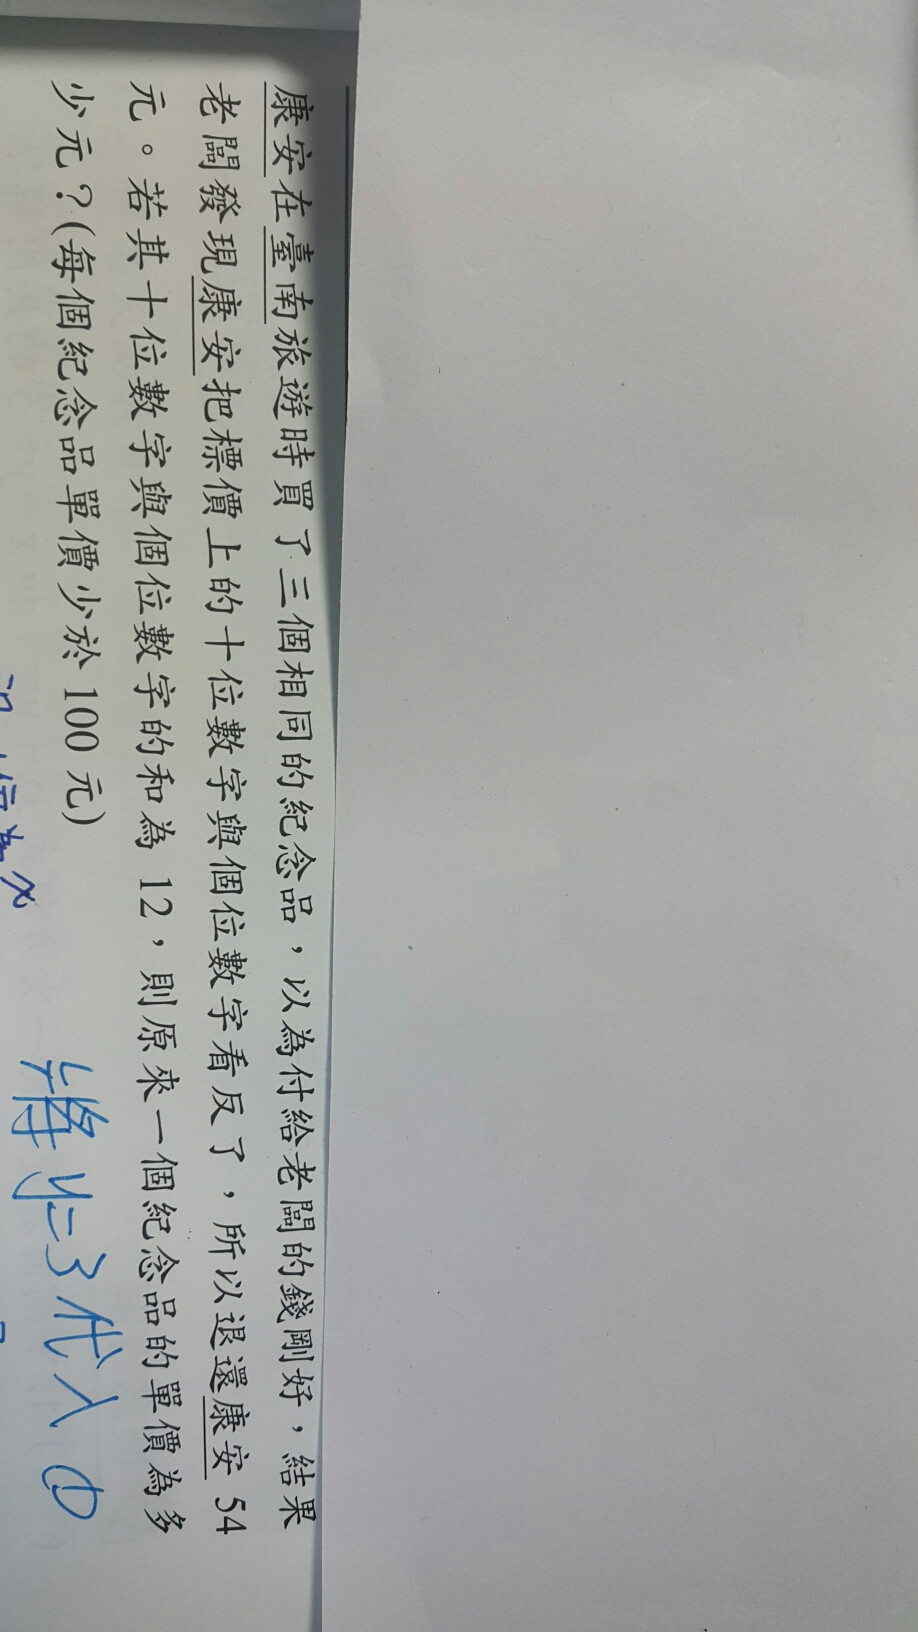 康安在臺南旅遊時買了三個相同的紀念品，以為付給老闆的錢剛好，結果
老闆發現康安把標價上的十位數字與個位數字看反了，所以退還康安 54
元。若其十位數字與個位數字的和為 12，則原來一個紀念品的單價為多
少元？(每個紀念品單價少於 100 元)
將 y=3 代入 ①